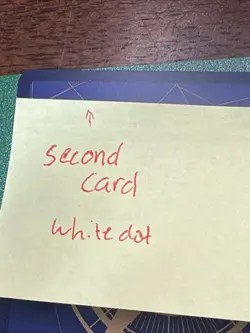 ↑
second
card
white dot